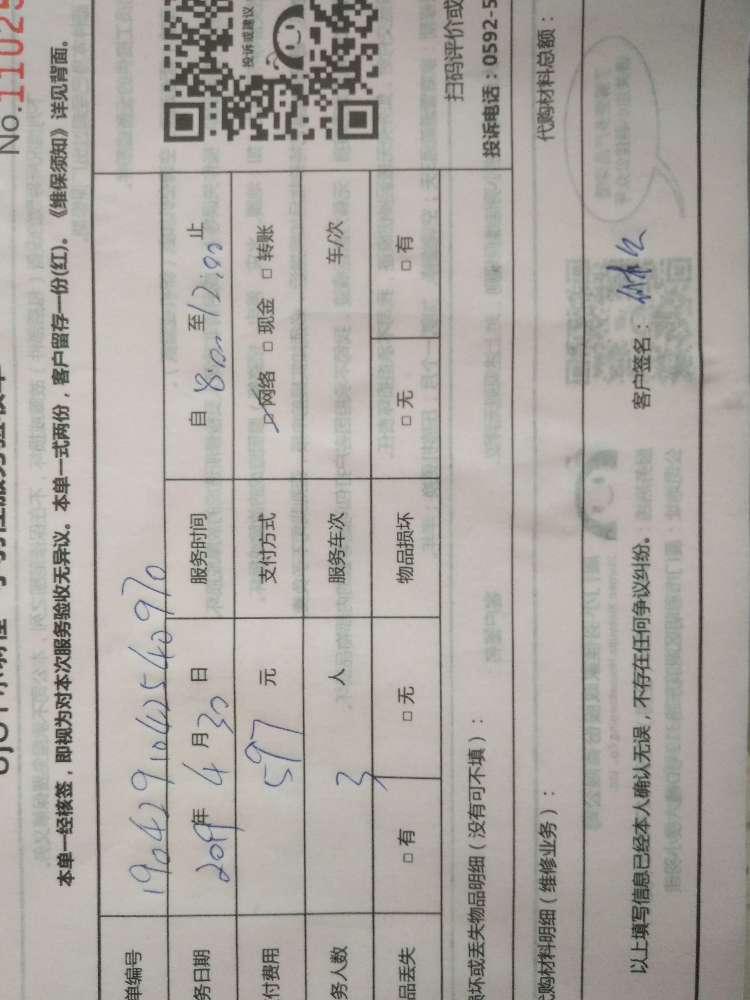 No.11025
本单一经核签，即视为对本次服务验收无异议。本单一式两份，客户留存一份(红)。《维保须知》详见背面。
单编号 1904291042540970
务日期 2019年 4月 30日 服务时间 自 8:00 至 12:00 止
付费用 597 元 支付方式 ☑网络 □现金 □转账
务人数 3 人 服务车次 车/次
品丢失 □有 □无 物品损坏 □无 □有
损坏或丢失物品明细（没有可不填）：
投诉或建议
扫码评价或
投诉电话：0592-5
代购材料明细（维修业务）： 代购材料总额：
以上填写信息已经本人确认无误，不存在任何争议纠纷。 客户签名：